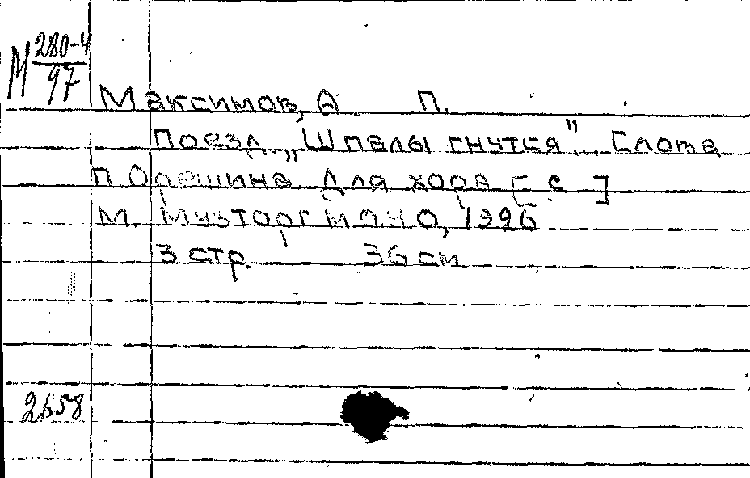 М 280-4
97
Максимов, А П.
Поезд. „Шпалы гнутся". Слова
П. Орешина. Для хора [ с ]
М. Музторг МОНО, 1926
3 стр. 36 см
2658